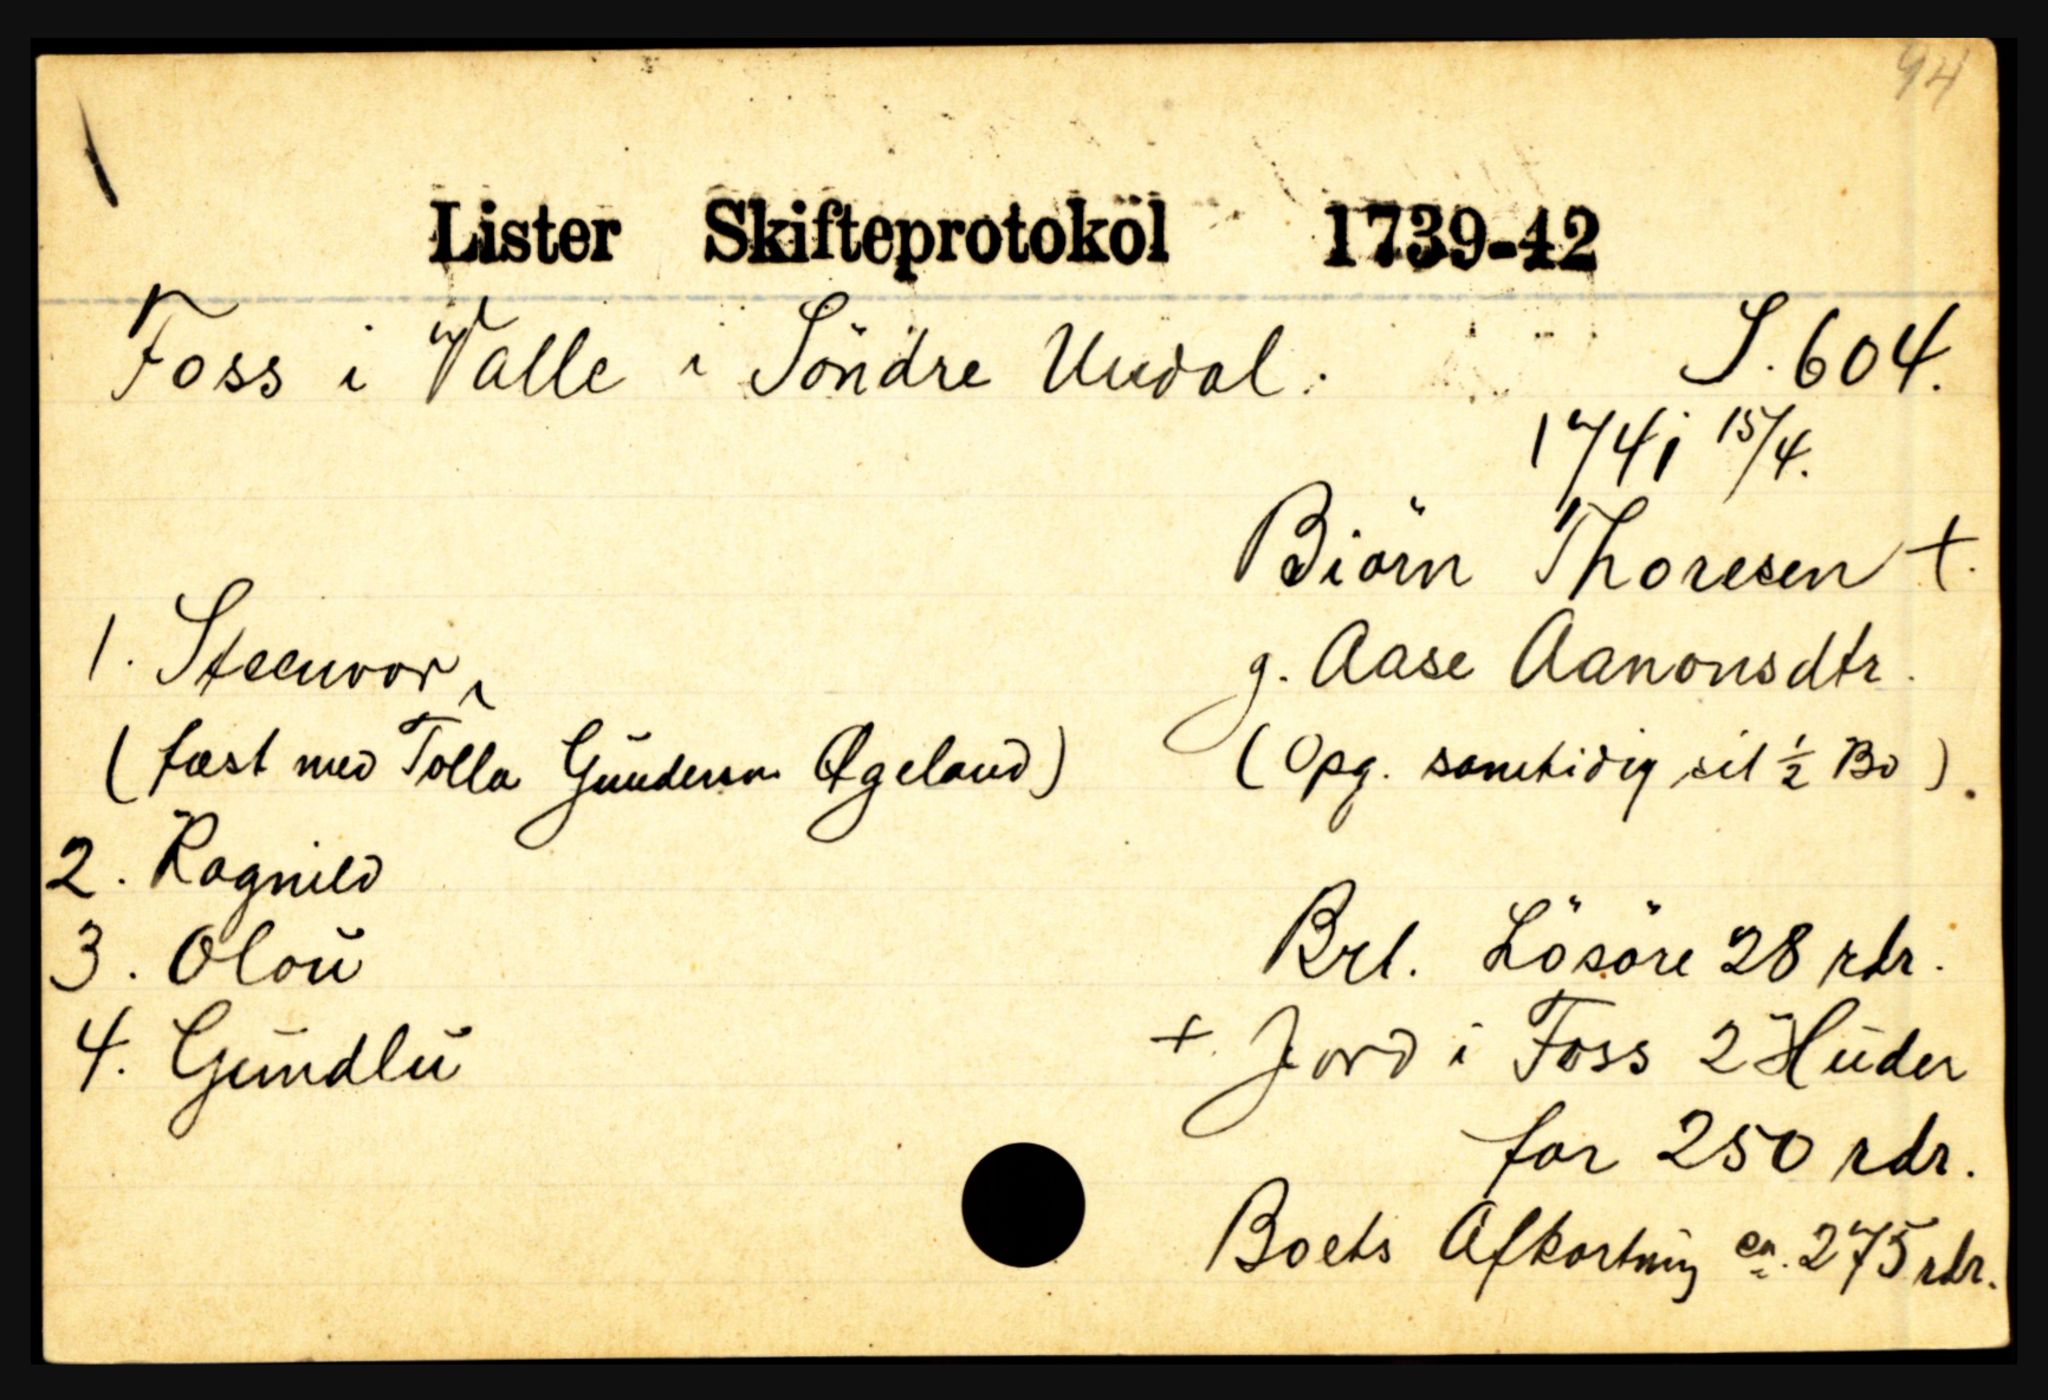 94
Lister Skifteprotokol 1739-42
Foss i Valle i Söndre Undal. S. 604.
1741 15/4.
Biörn Thoresen +.
1. Steenvor g. Aase Aanonsdtr.
(fæst med Tolla Gundersen Øgeland) (Opg. samtidig sit ½ Bo).
2. Ragnild
3. Olou Brt. Lösöre 28 rdr.
4. Gundlu + Jord i Foss 2 Huder
for 250 rdr.
Boets Afkortning ca. 275 rdr.